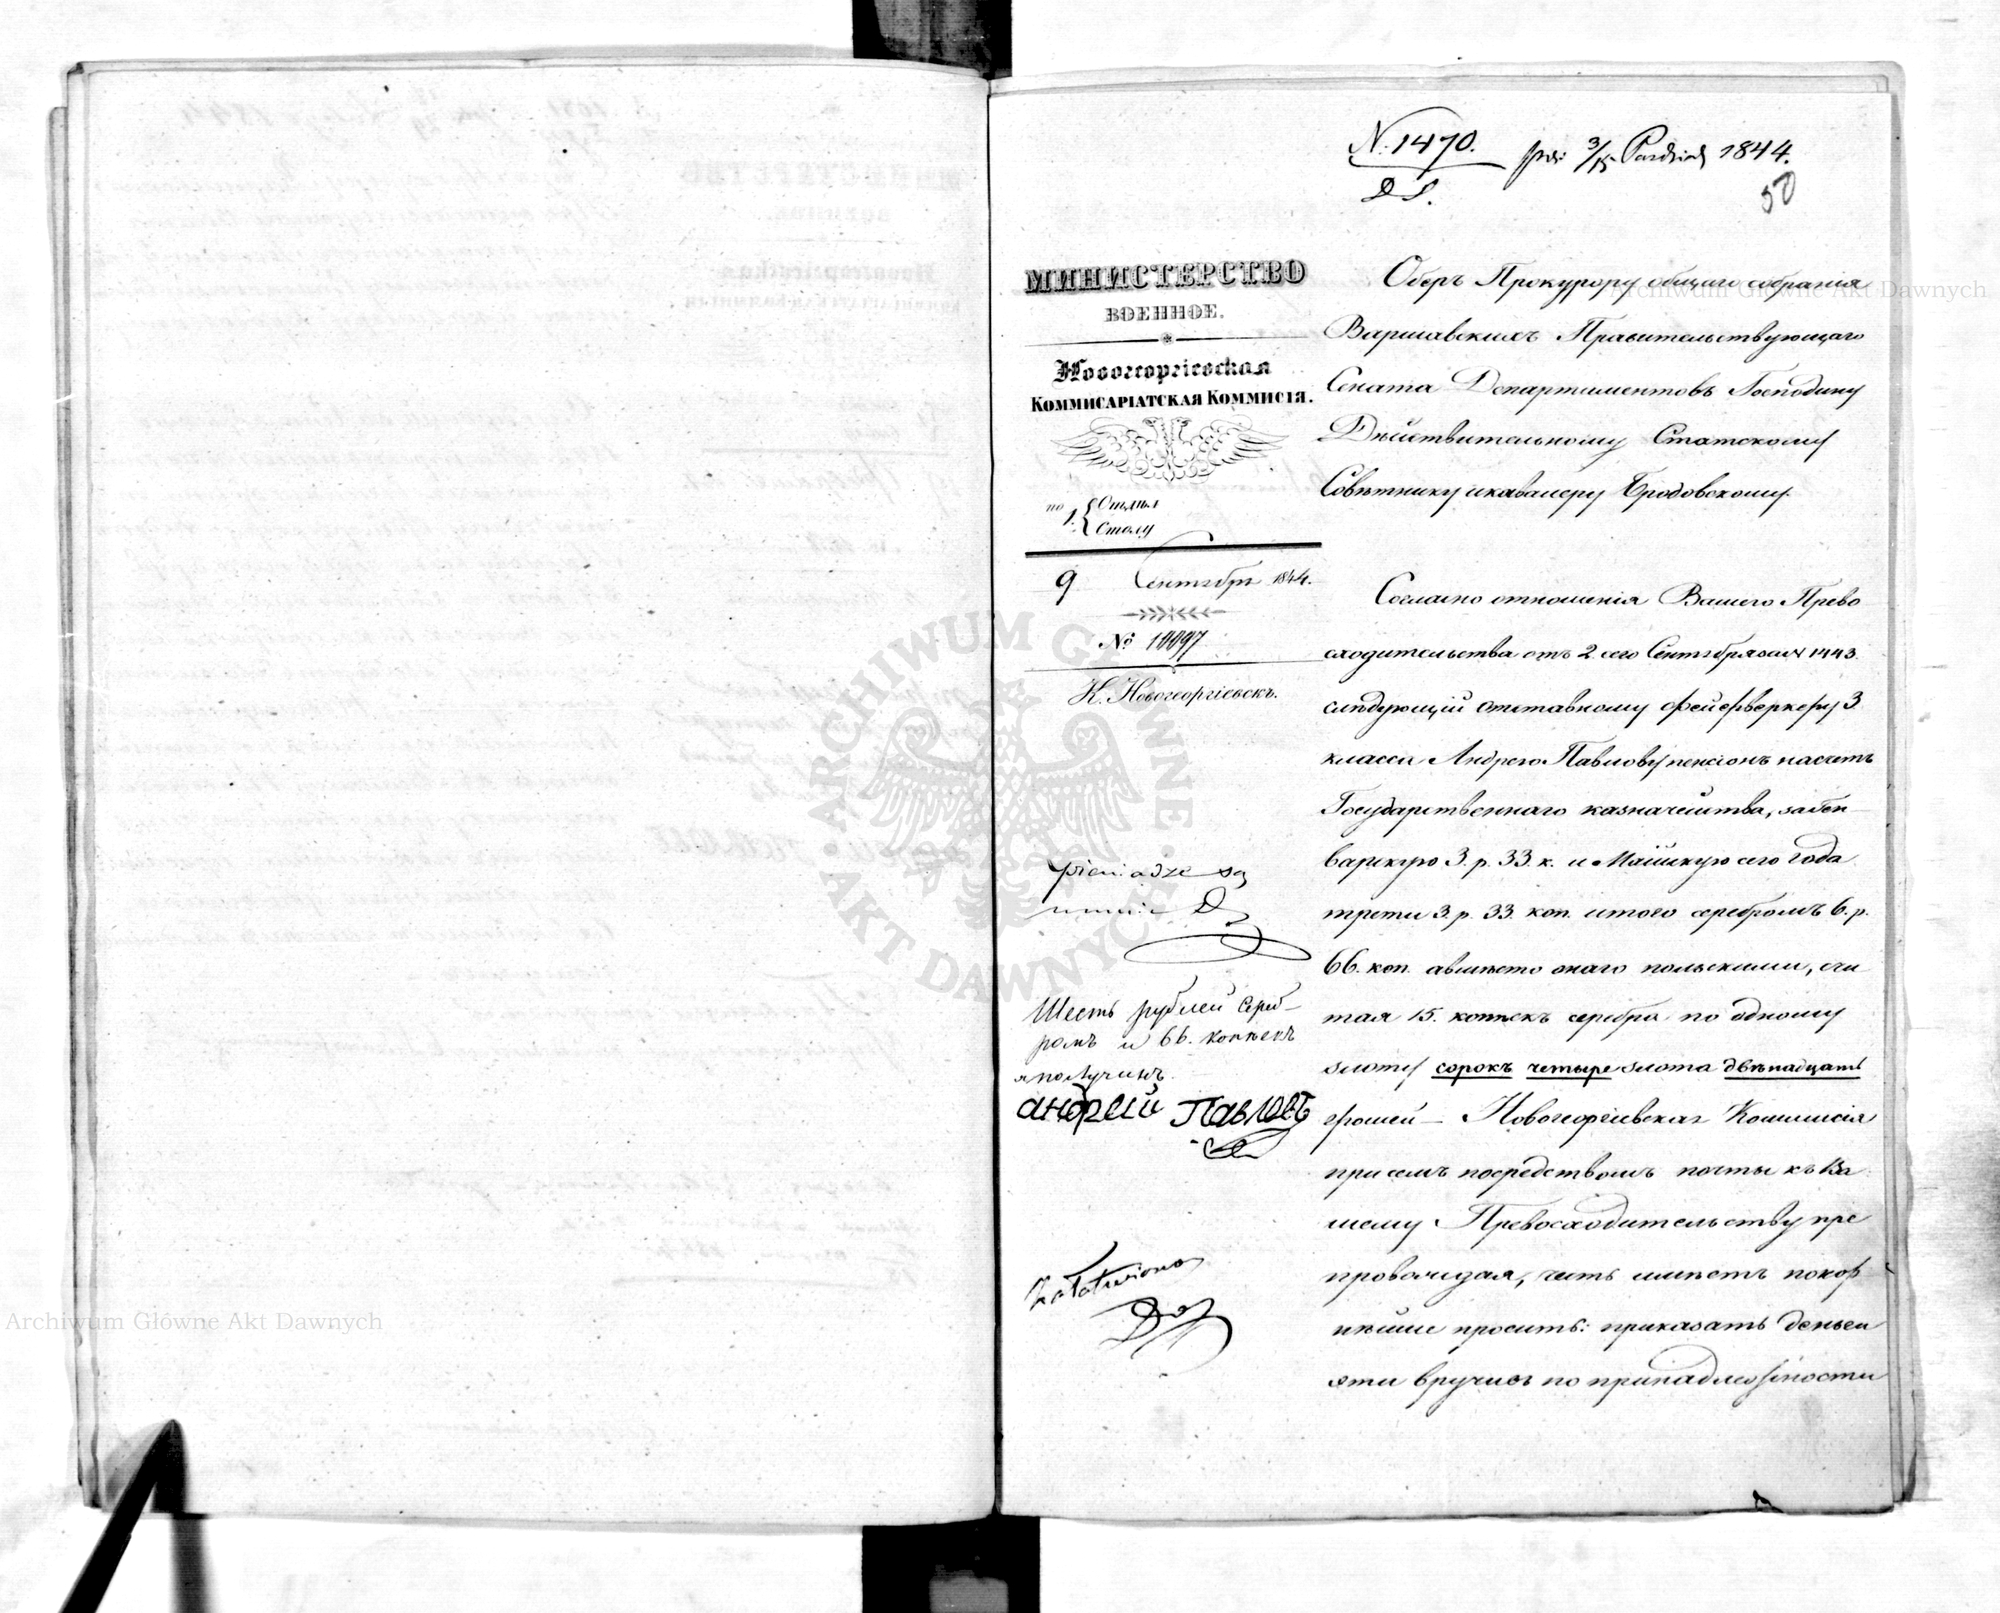 N. 1470. pr: 3/15 Paździer 1844.
D S.
50
МИНИСТЕРСТВО
ВОЕННОЕ.
Новогеоргіевская
Коммисаріатская Коммисія.
по 1. { Отдѣл
Столу
9 Сентября 1844.
№ 10097
К. Новогеоргіевскъ.
pieniądze są
u mnie
Шесть рублей сереб-
ромъ и 66. копѣекъ
я получилъ.
андрей Павловъ
Załatwiono
Оберъ Прокурору общаго собранія
Варшавскихъ Правительствующаго
Сената Департаментовъ Господину
Дѣйствительному Статскому
Совѣтнику и кавалеру Бродовскому.
Согласно отношенія Вашего Прево
сходительства отъ 2. сего Сентября за № 1443.
слѣдующій отставному фейерверкеру 3
класса Андрею Павлову пенсіонъ насчетъ
Государственнаго казначейства, за Ген-
варскую 3. р. 33. к. и Майскую сего года
трети 3. р. 33. коп. итого серебромъ 6. р.
66. коп. авмѣсто онаго польскими, счи
тая 15. копѣекъ серебра по одному
злоту сорокъ четыре злота двѣнадцать
грошей — Новогеоргіевская Коммисія
при семъ посредствомъ почты къ Ва
шему Превосходительству пре
провождая, честь имѣетъ покор
нѣйше просить: приказать деньги
эти вручить по принадлежности
Archiwum Główne Akt Dawnych
Archiwum Główne Akt Dawnych
ARCHIWUM GŁÓWNE AKT DAWNYCH